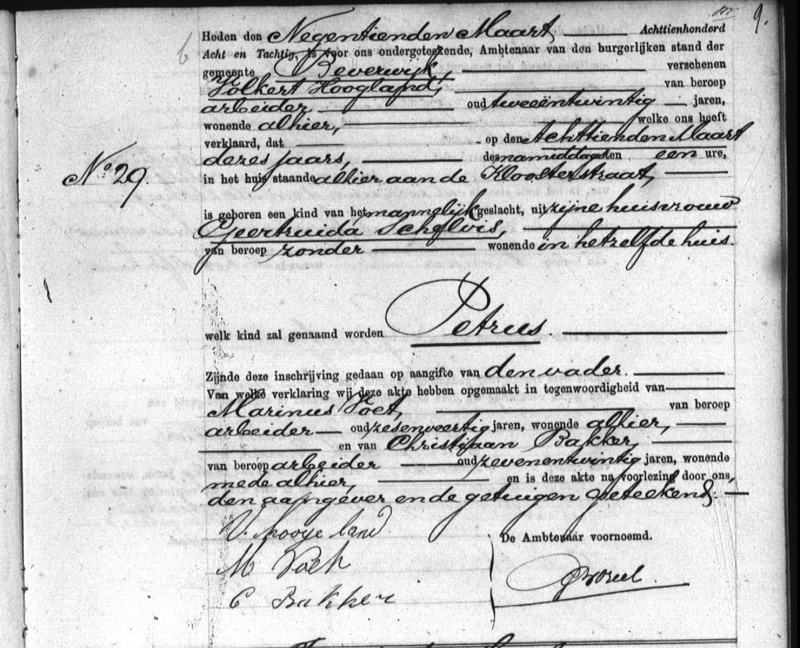 9.
Heden den Negentienden Maart Achttienhonderd
Acht en Tachtig, is voor ons ondergeteekende, Ambtenaar van den burgerlijken stand der
gemeente Beverwijk verschenen
Volkert Hoogland, van beroep
arbeider oud tweeëntwintig jaren,
wonende alhier, welke ons heeft
verklaard, dat op den Achttienden Maart
dezes jaars, des namiddags ten een ure,
No 29.
in het huis staande alhier aan de Kloosterstraat,
is geboren een kind van het mannelijk geslacht, uit zijne huisvrouw
Geertruida Schelvis,
van beroep zonder wonende in hetzelfde huis.
welk kind zal genaamd worden Petrus.
Zijnde deze inschrijving gedaan op aangifte van den vader.
Van welke verklaring wij deze akte hebben opgemaakt in tegenwoordigheid van
Marinus Voet, van beroep
arbeider oud zesenveertig jaren, wonende alhier,
en van Christijaan Bakker,
van beroep arbeider oud zevenentwintig jaren, wonende
mede alhier, en is deze akte na voorlezing door ons,
den aangever en de getuigen geteekend.
V. hooge land
De Ambtenaar voornoemd.
M Voet
C Bakker